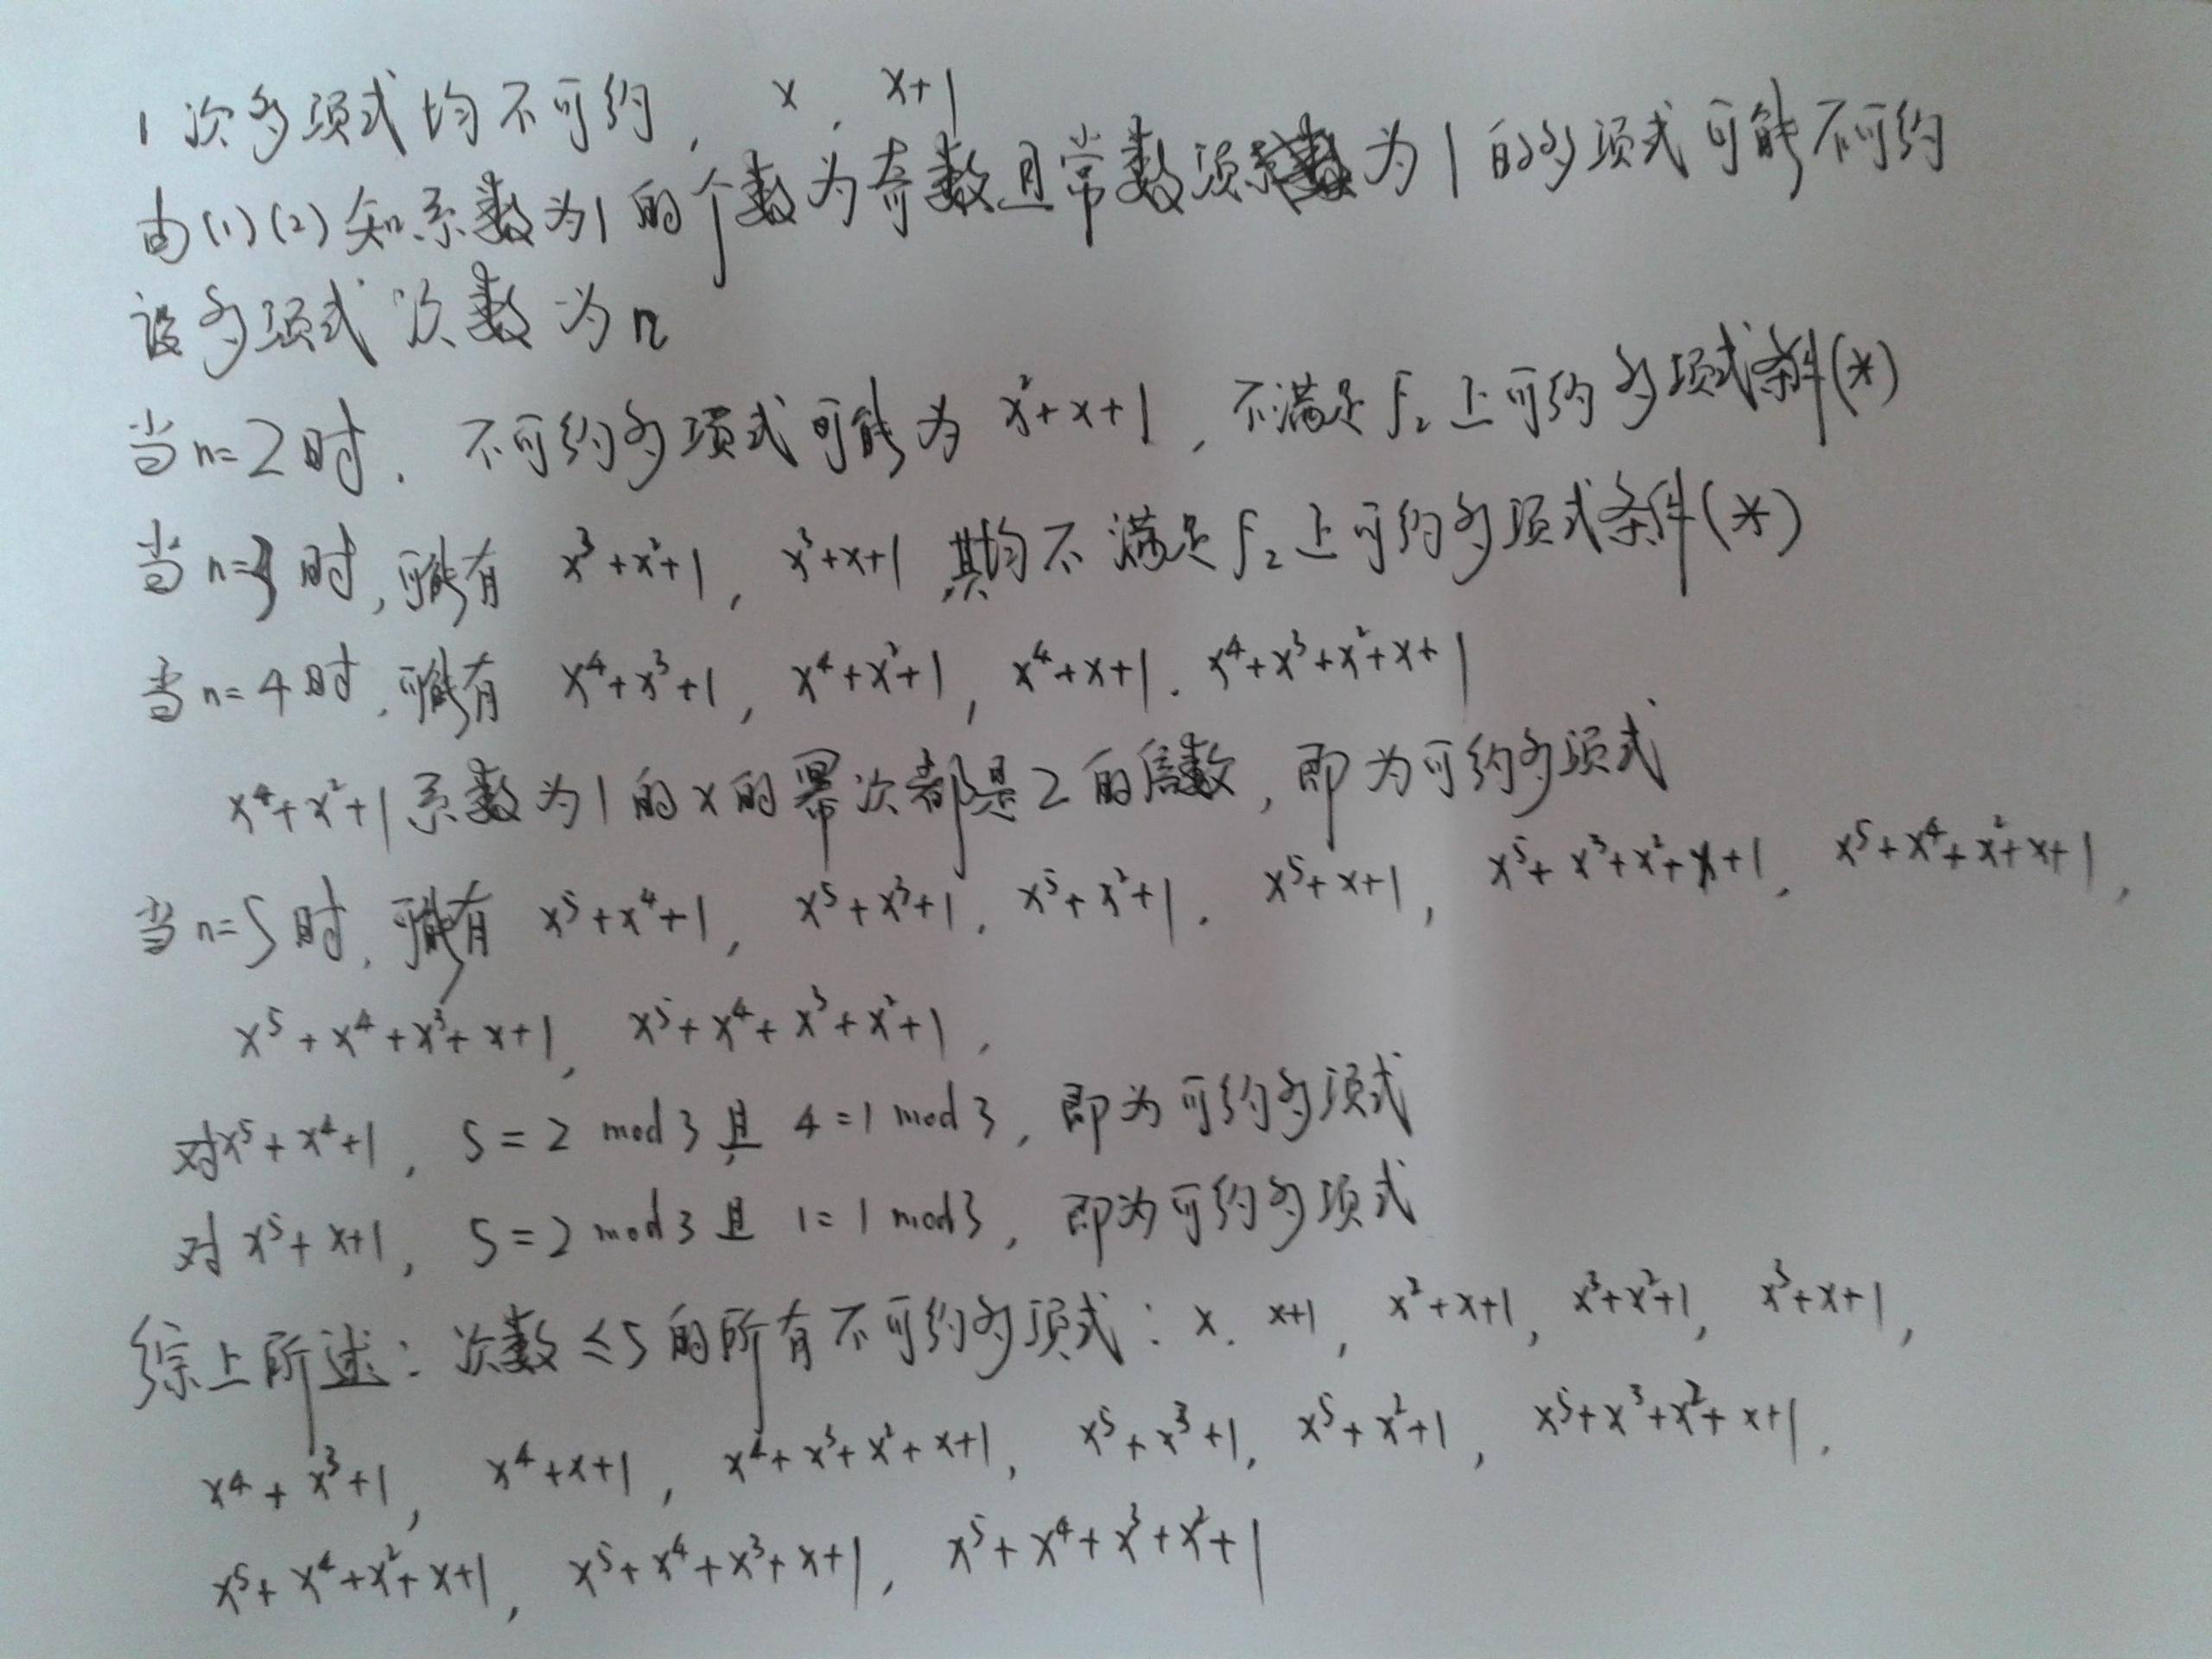 1次多项式均不可约, x, x+1
由(1)(2)知系数为1的个数为奇数且常数项系数为1的多项式可能不可约
设多项式次数为n
当n=2时, 不可约多项式可能为 x²+x+1, 不满足F₂上可约多项式条件(*)
当n=3时, 可能有 x³+x²+1, x³+x+1 其均不满足F₂上可约多项式条件(*)
当n=4时, 可能有 x⁴+x³+1, x⁴+x²+1, x⁴+x+1. x⁴+x³+x²+x+1
x⁴+x²+1系数为1的x的幂次都是2的倍数, 即为可约多项式
当n=5时, 可能有 x⁵+x⁴+1, x⁵+x³+1, x⁵+x²+1, x⁵+x+1, x⁵+x³+x²+x+1, x⁵+x⁴+x²+x+1,
x⁵+x⁴+x³+x+1, x⁵+x⁴+x³+x²+1,
对x⁵+x⁴+1, 5=2 mod 3 且 4=1 mod 3, 即为可约多项式
对x⁵+x+1, 5=2 mod 3 且 1=1 mod 3, 即为可约多项式
综上所述: 次数≤5的所有不可约多项式: x, x+1, x²+x+1, x³+x²+1, x³+x+1,
x⁴+x³+1, x⁴+x+1, x⁴+x³+x²+x+1, x⁵+x³+1, x⁵+x²+1, x⁵+x³+x²+x+1,
x⁵+x⁴+x²+x+1, x⁵+x⁴+x³+x+1, x⁵+x⁴+x³+x²+1